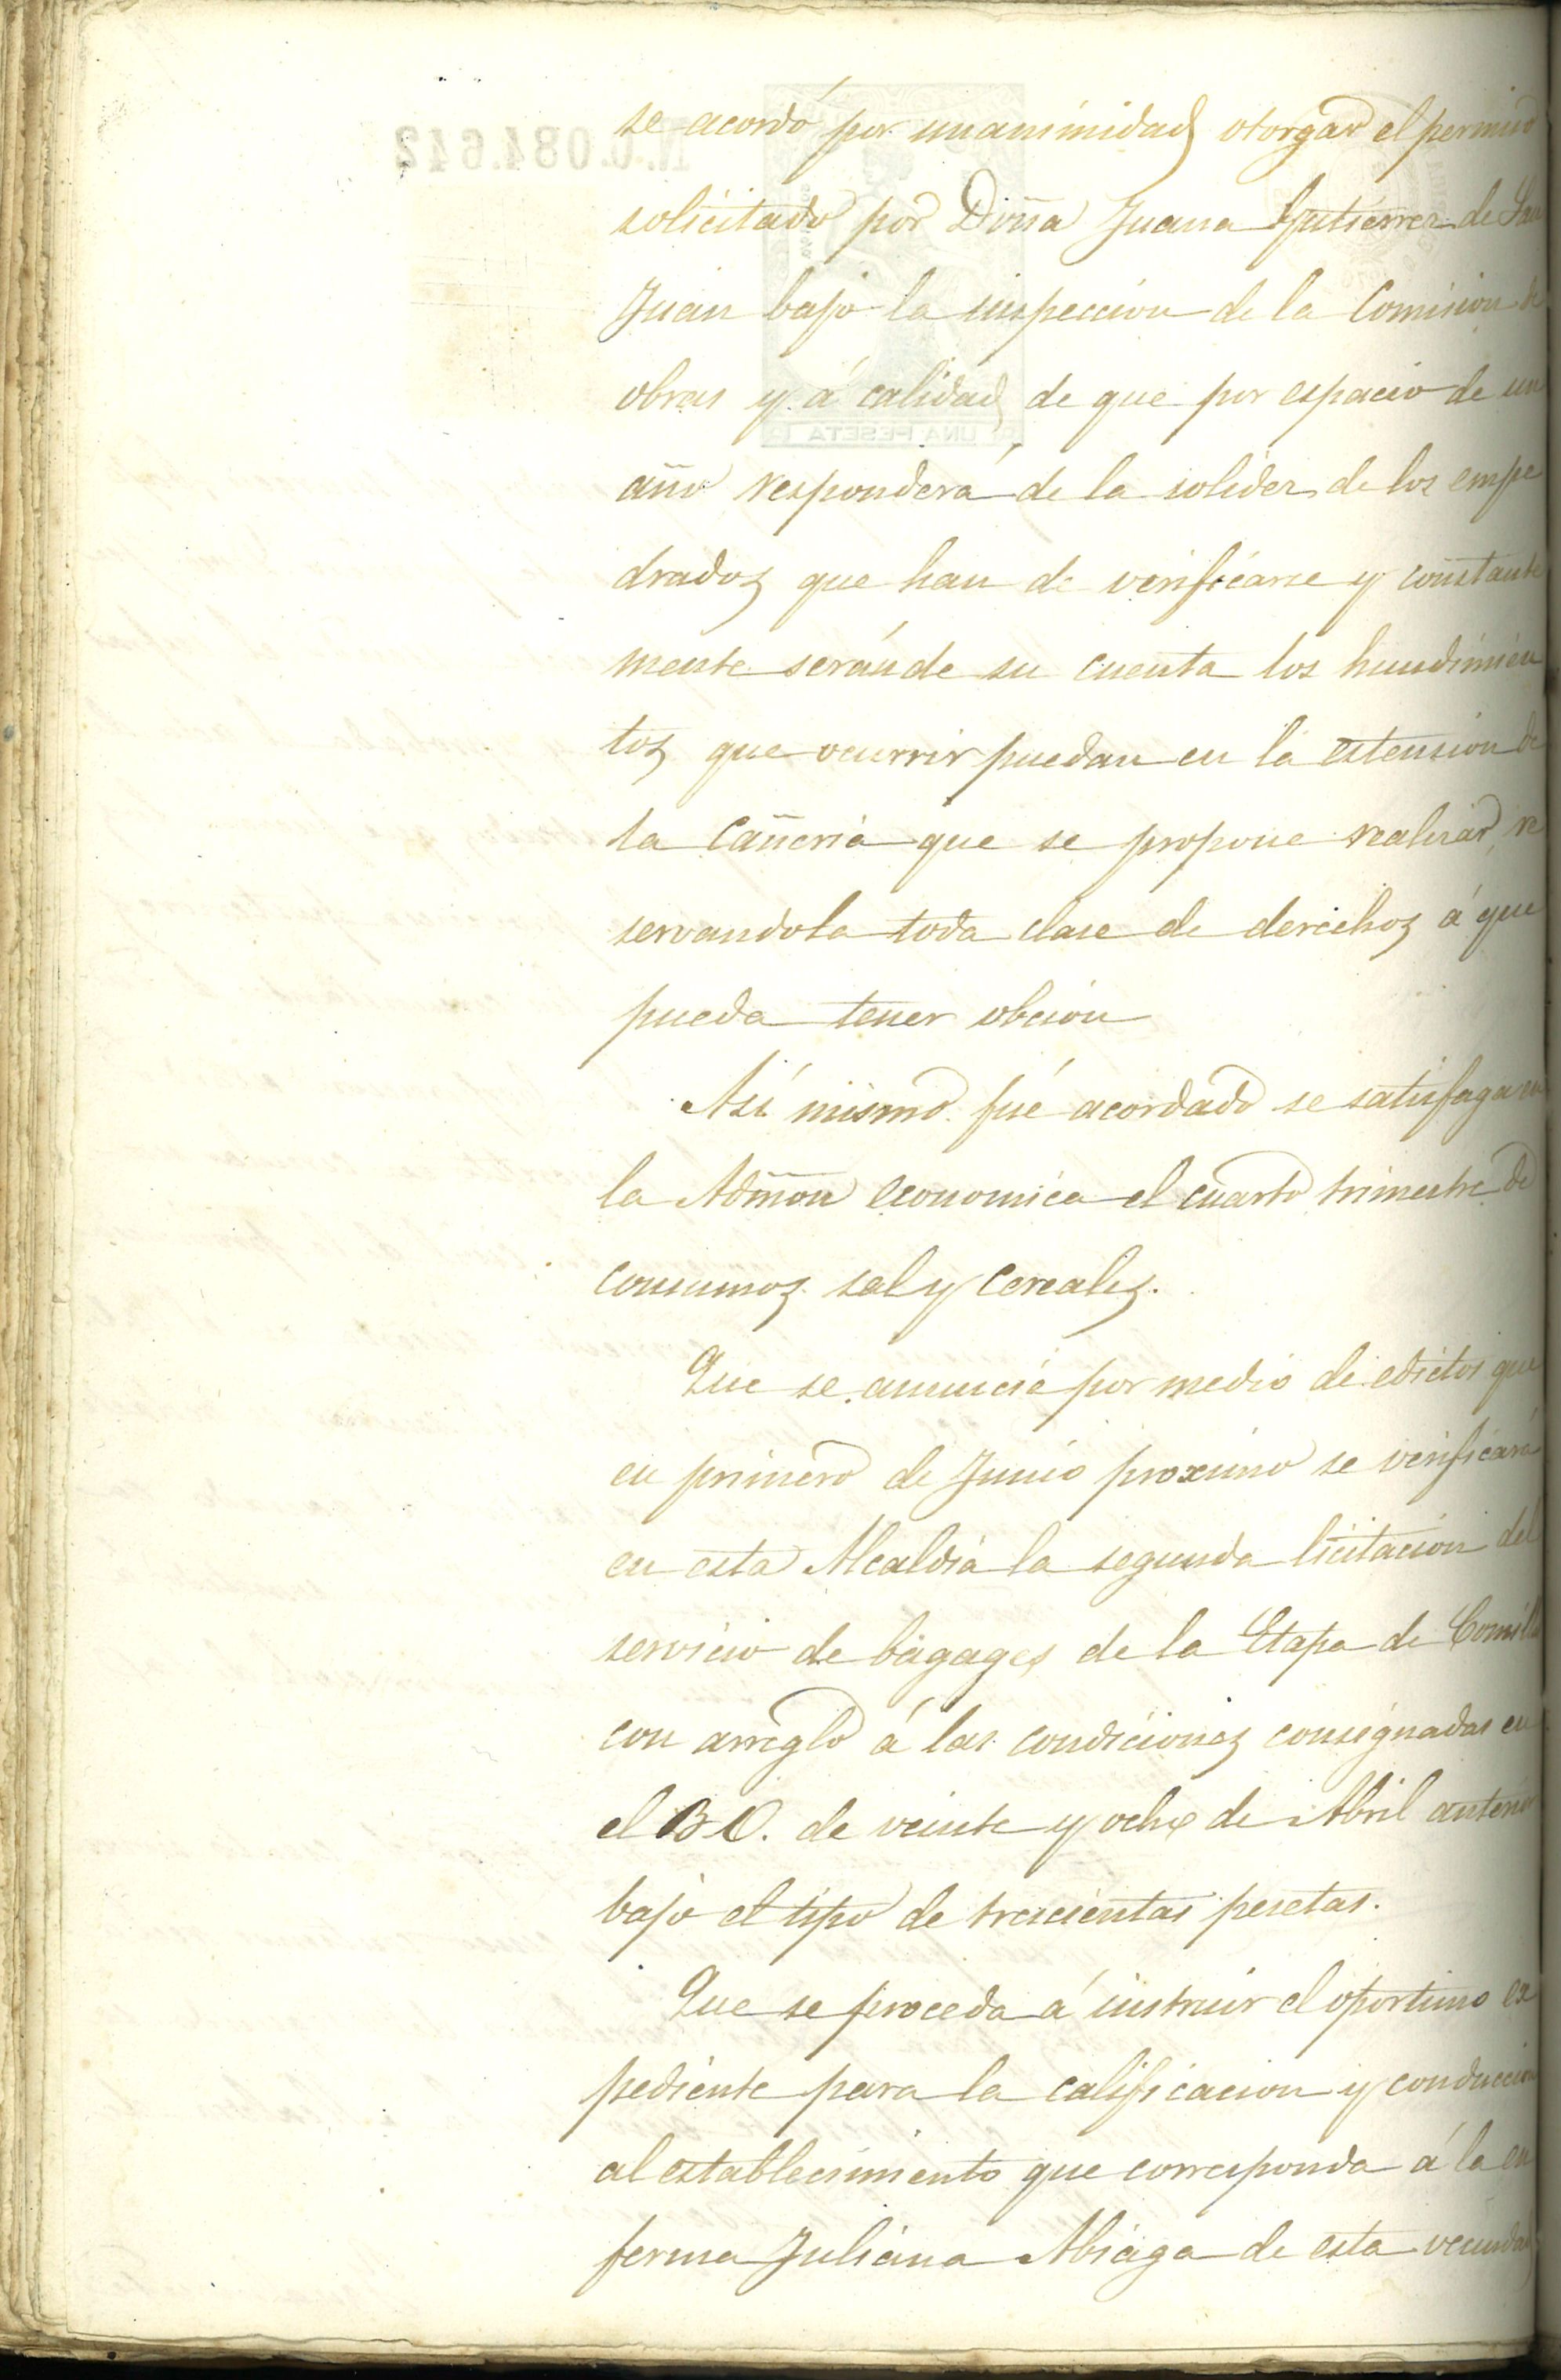 se acordó por unaminidad otorgar el permiso
solicitado por Doña Juana Gutierrez de San
Juan bajo la inspeccion de la Comision de
obras y á calidad de que por espacio de un
año responderá de la solidez de los empe
drados que han de verificarse y constante
mente serán de su cuenta los hundimien
tos que ocurrir puedan en la estension de
la Cañeria que se propone realizar, re
servandola toda clase de derechos á que
pueda tener obcion
Asi mismo fué acordado se satisfaga en
la Admon economica el cuarto trimestre de
consumos sal y cereales.
Que se anuncie por medio de edictos que
en primero de Junio proximo se verificará
en esta Alcaldia la segunda licitacion del
servicio de bagages de la Etapa de Comillas
con arreglo á las condiciones consignadas en
el B.O. de veinte y ocho de Abril anterior
bajo el tipo de trescientas pesetas.
Que se proceda á instruir el oportuno ex
pediente para la calificacion y conduccion
al establecimiento que corresponda á la en
ferma Juliana Abiaga de esta vecindad
N.0.084.642
UNA PESETA